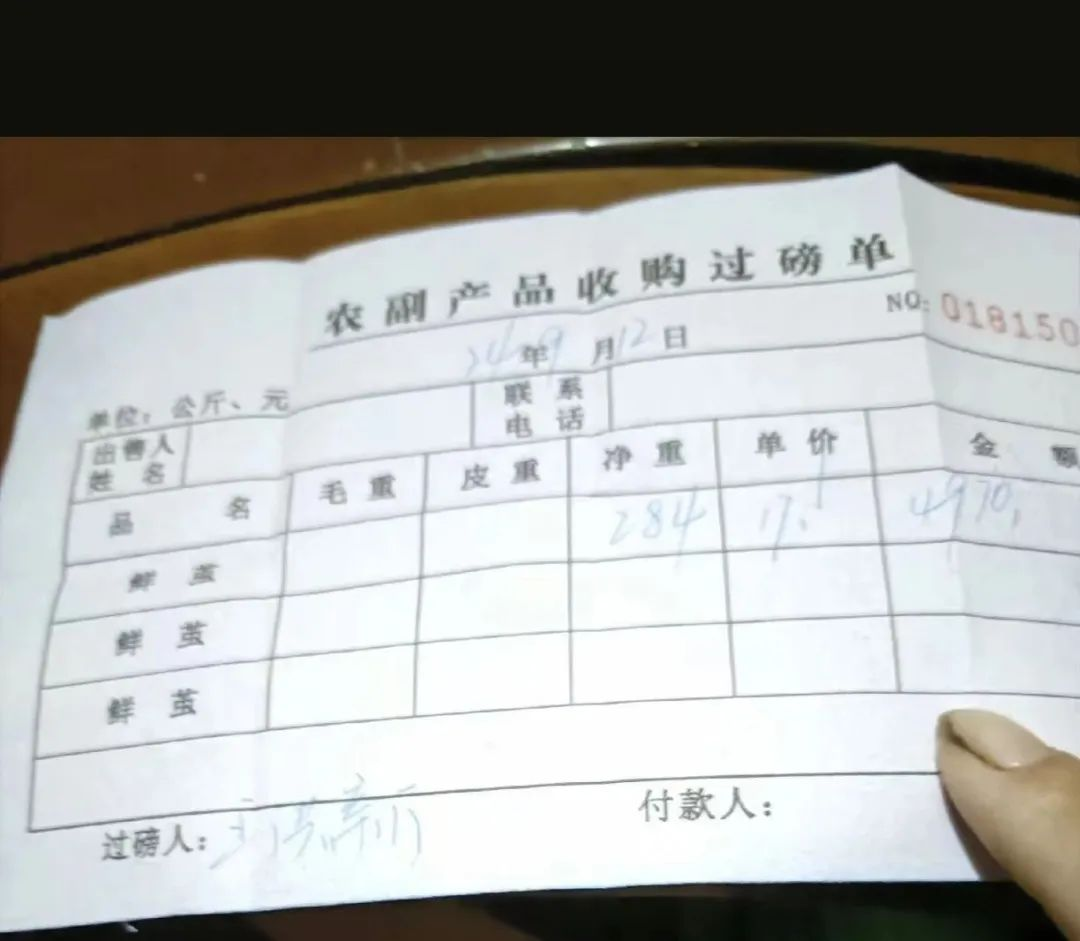 农副产品收购过磅单
NO: 018150
24年9月12日
单位：公斤、元
出售人姓名 联系电话
品名 毛重 皮重 净重 单价 金额
鲜茧 284 17. 4970
鲜茧
鲜茧
过磅人： 付款人：